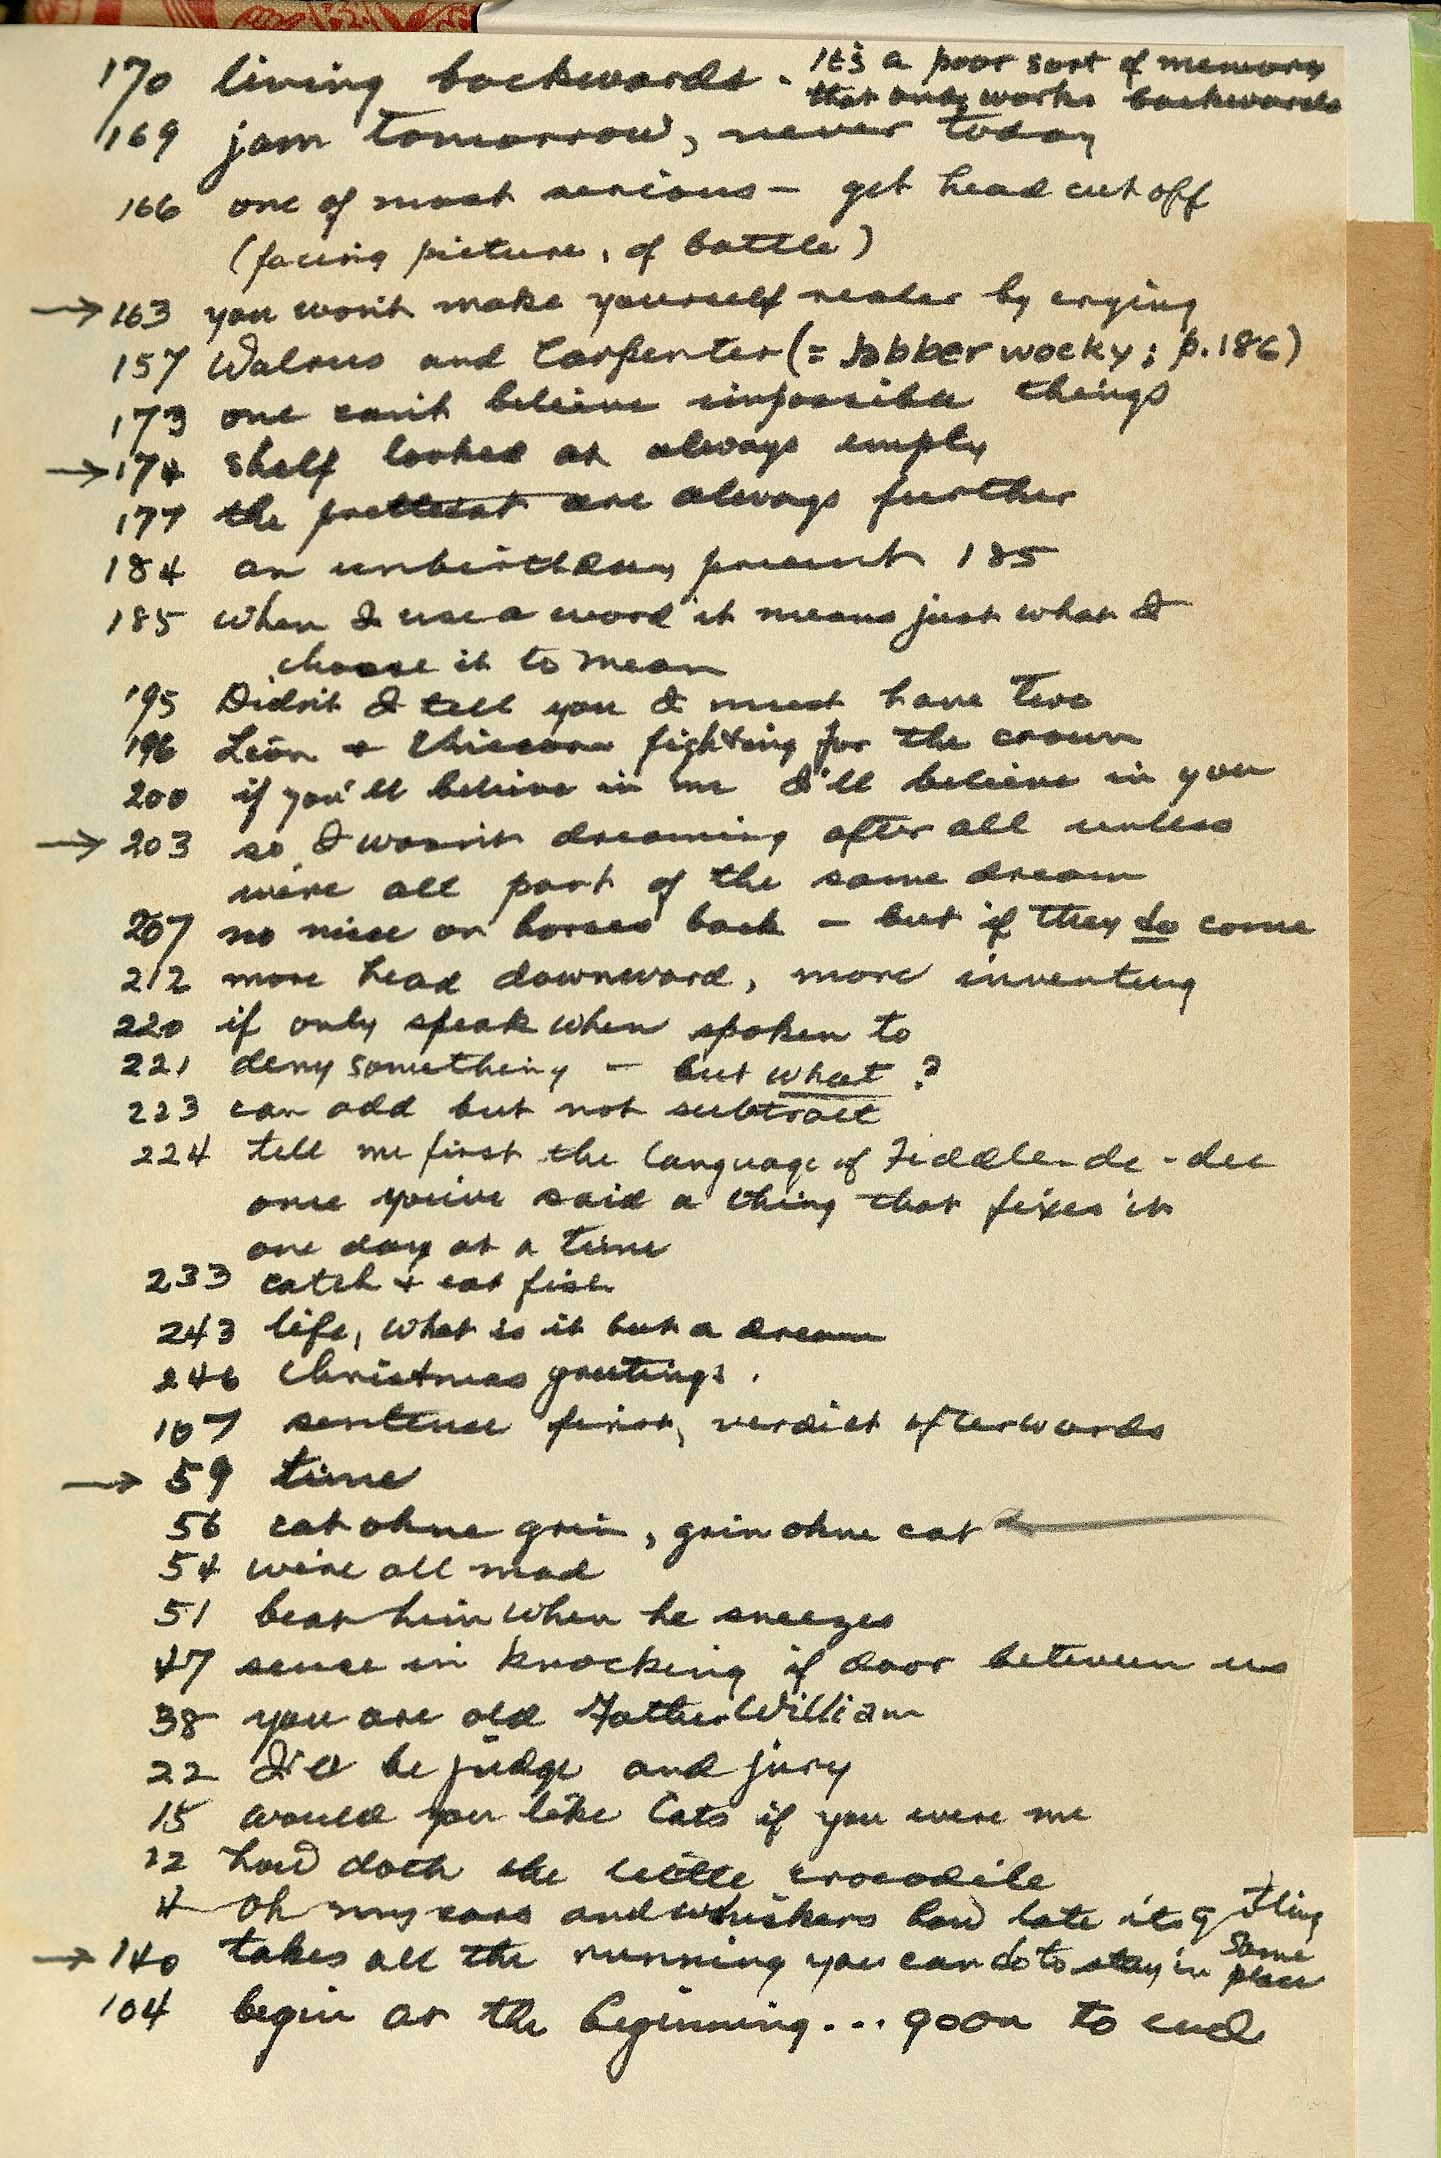 170 living backwards - It's a poor sort of memory
that only works backwards
169 jam tomorrow, never today
166 one of most serious - get head cut off
(facing picture, of battle)
→ 163 you won't make yourself realer by crying
157 Walrus and Carpenter (= Jabberwocky; p.186)
173 one can't believe impossible things
→ 174 shelf looked at always empty
177 the prettiest are always further
184 an unbirthday present 185
185 when I use a word it means just what I
choose it to mean
195 Didn't I tell you I must have two
196 Lion + Unicorn fighting for the crown
200 if you'll believe in me I'll believe in you
→ 203 so I wasn't dreaming after all unless
we're all part of the same dream
207 no mice on horses back - but if they do come
212 more head downward, more inventing
220 if only speak when spoken to
221 deny something - but what?
223 can add but not subtract
224 tell me first the language of Fiddle-de-dee
once you've said a thing that fixes it
one day at a time
233 catch + eat fish
243 life, what is it but a dream
246 Christmas greetings.
107 sentence first, verdict afterwards
→ 59 time
56 cat ohne grin, grin ohne cat
54 we're all mad
51 beat him when he sneezes
47 sense in knocking if door between us
38 you are old Father William
22 I'll be judge and jury
15 would you like Cats if you were me
12 how doth the little crocodile
4 Oh my ears and whiskers how late it's getting
→ 140 takes all the running you can do to stay in same place
104 begin at the beginning... go on to end